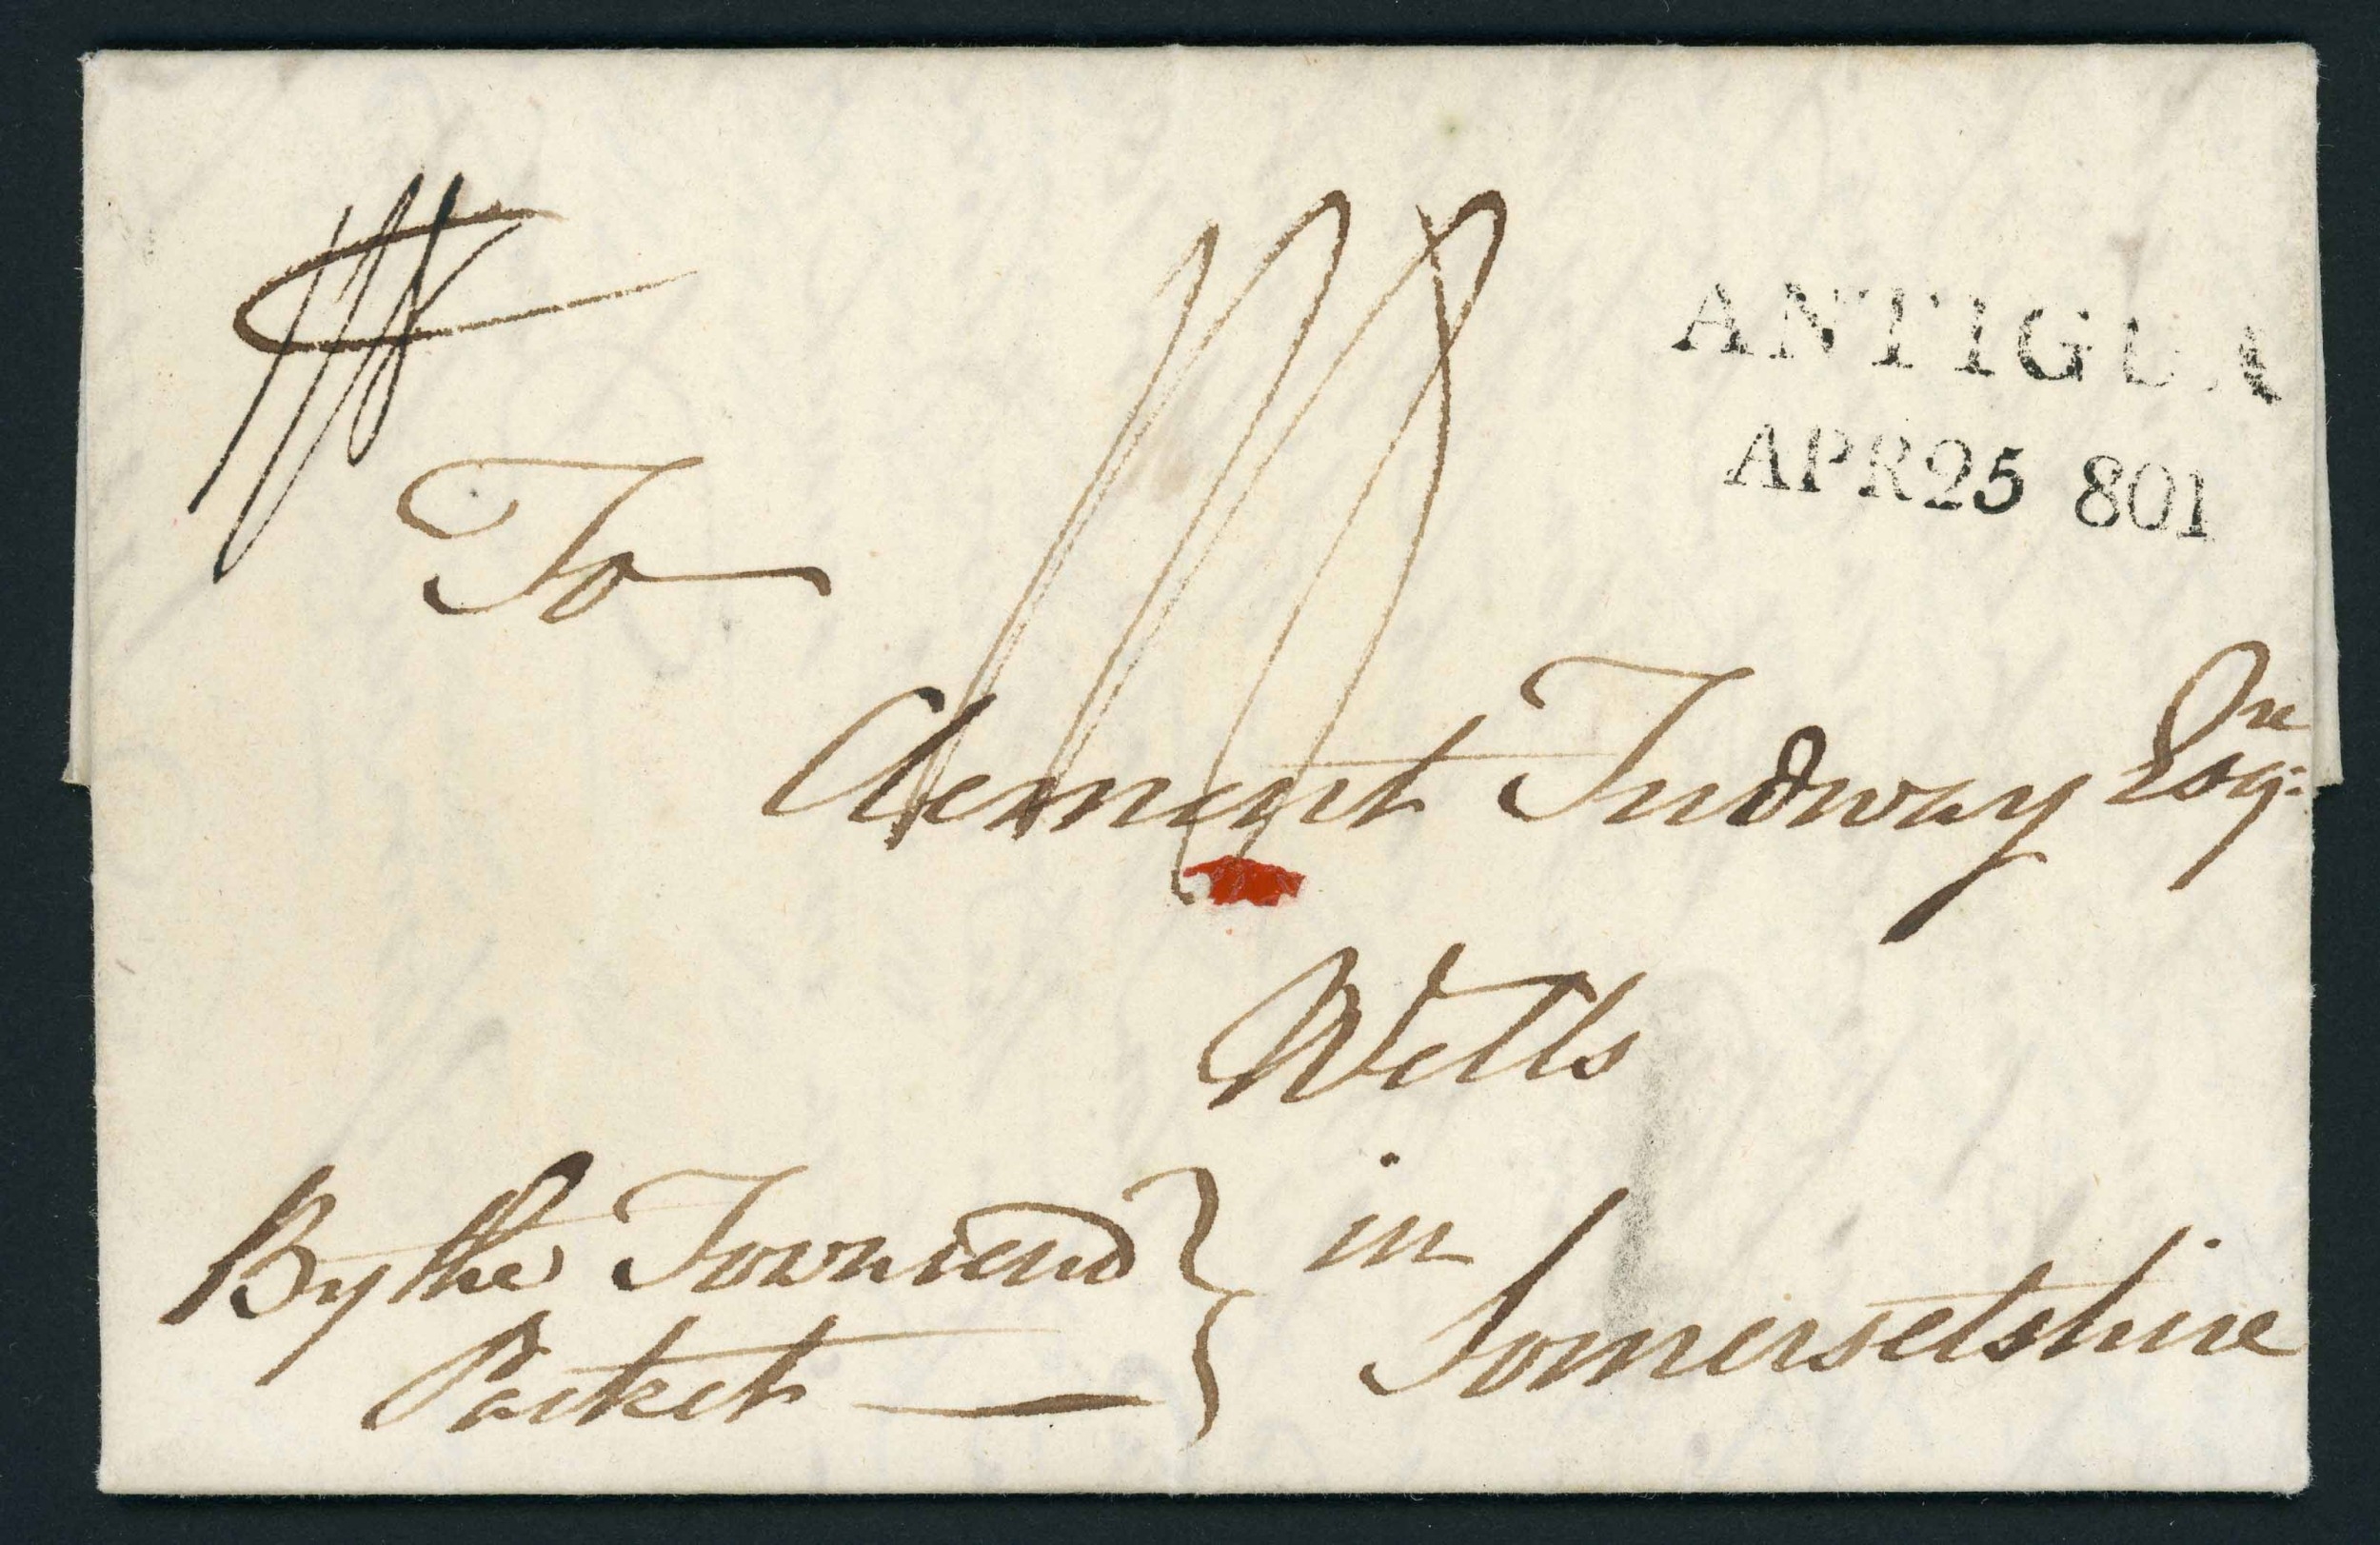 ANTIGUA
APR 25 801
To
Clement Tudway Esq:
Wells
in
Somersetshire
By the Townsend
Packet